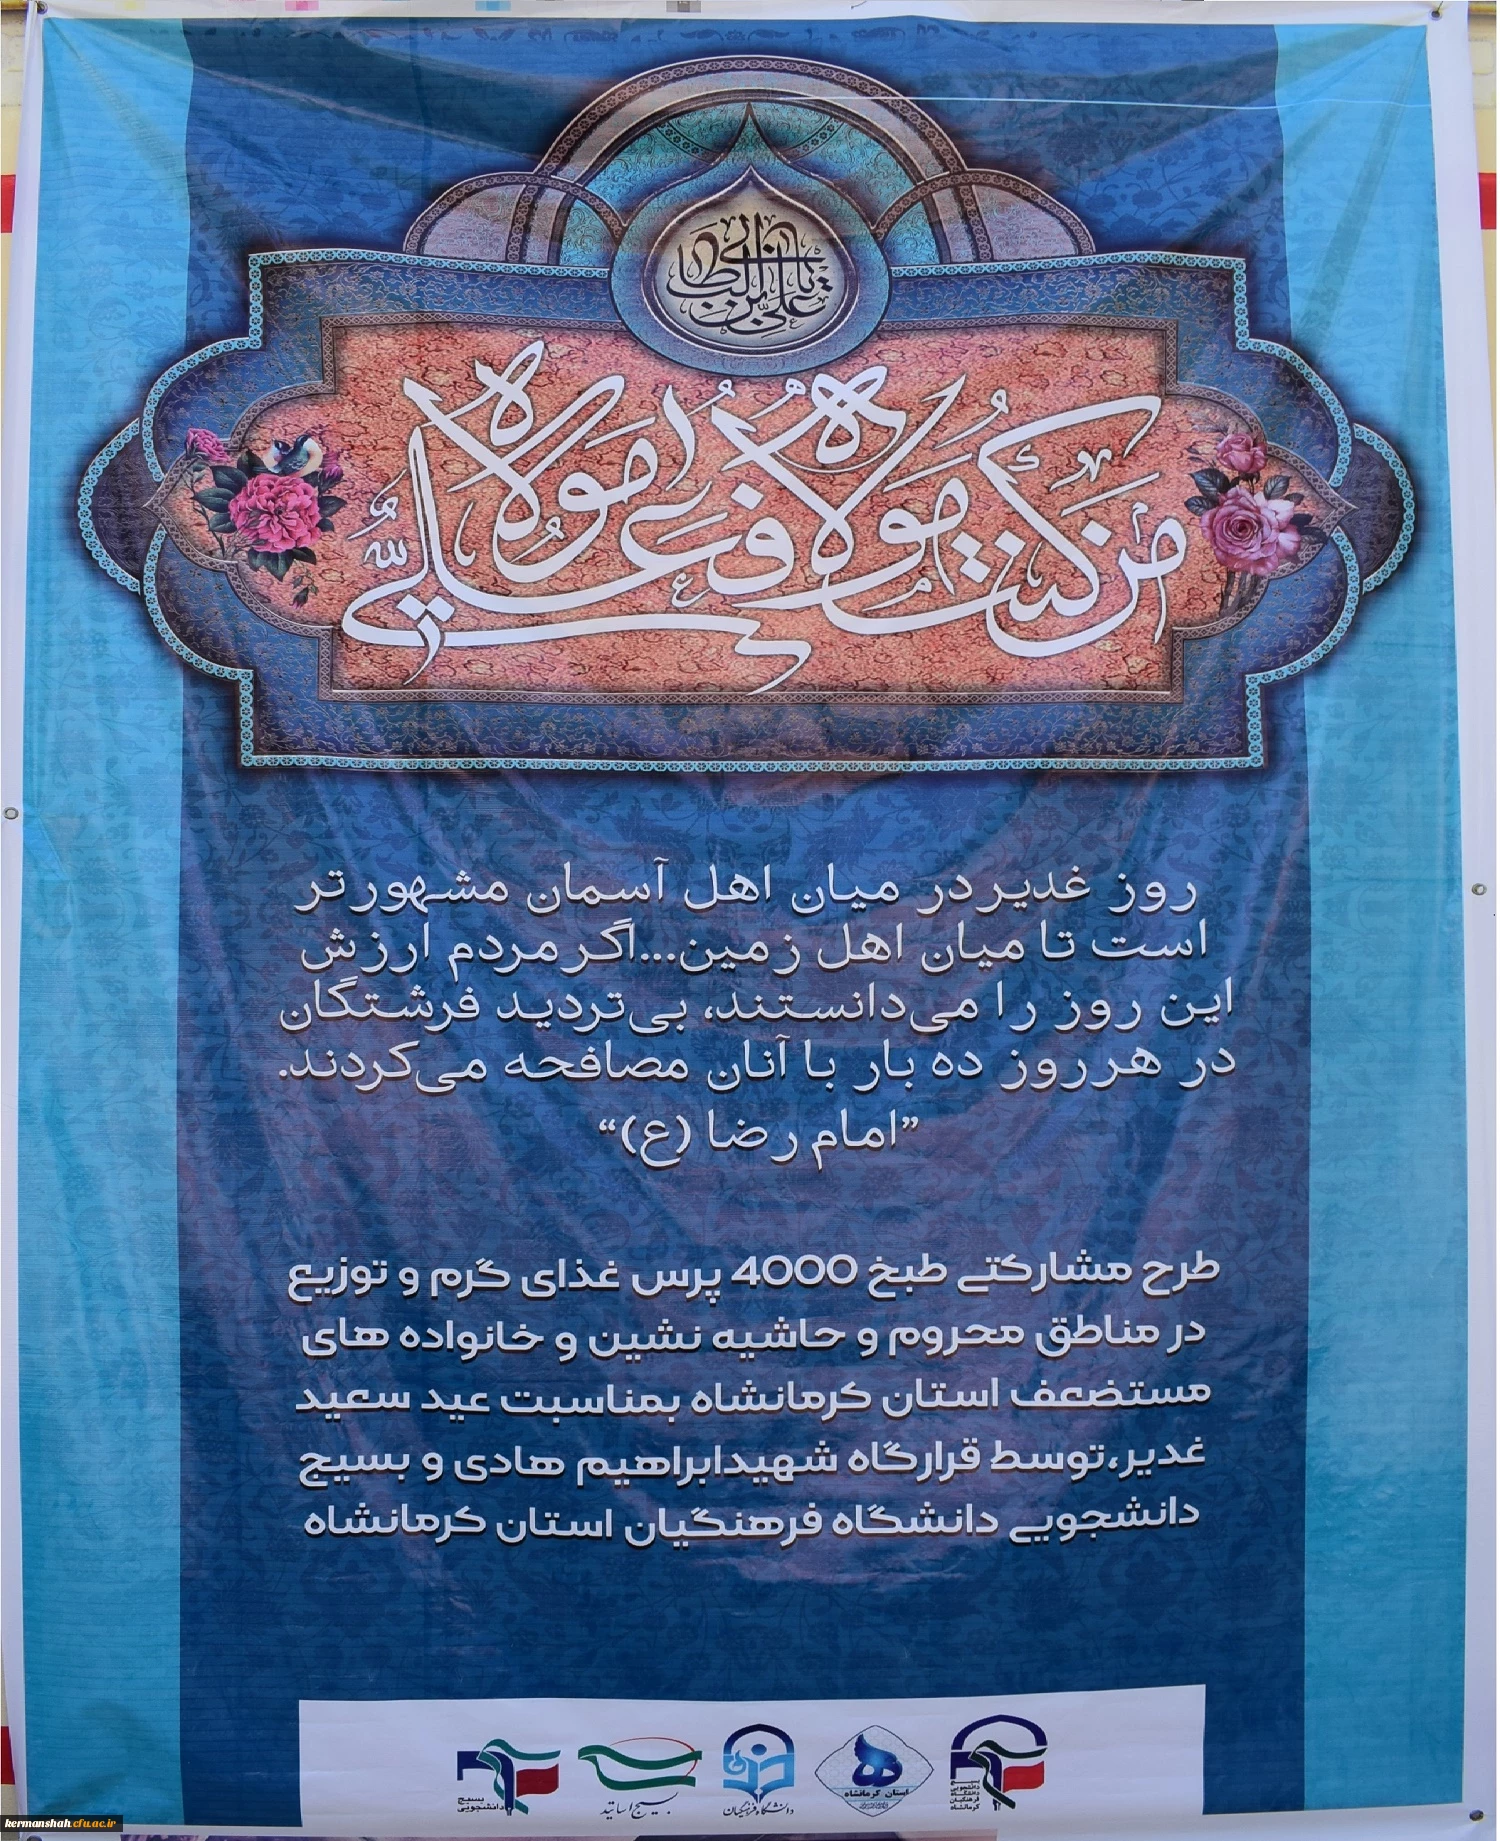 یا علی بن ابی طالب
من کنت مولاه فهذا علی مولاه
روز غدیر در میان اهل آسمان مشهورتر
است تا میان اهل زمین...اگر مردم ارزش
این روز را می‌دانستند، بی‌تردید فرشتگان
در هر روز ده بار با آنان مصافحه می‌کردند.
”امام رضا (ع)“
طرح مشارکتی طبخ 4000 پرس غذای گرم و توزیع
در مناطق محروم و حاشیه نشین و خانواده های
مستضعف استان کرمانشاه بمناسبت عید سعید
غدیر،توسط قرارگاه شهیدابراهیم هادی و بسیج
دانشجویی دانشگاه فرهنگیان استان کرمانشاه
بسیج
دانشجویی
دانشگاه
فرهنگیان
کرمانشاه
استان کرمانشاه
دانشگاه فرهنگیان
بسیج اساتید
بسیج
دانشجویی
kermanshah.cfu.ac.ir